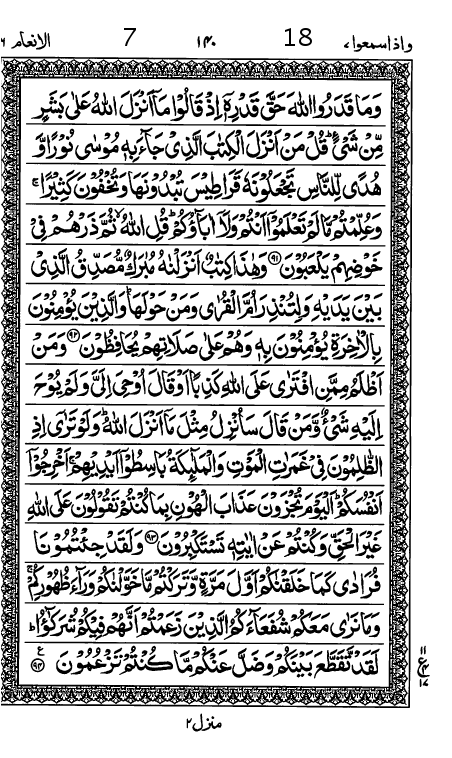 الانعام ٦ 7 ١٤٠ 18 واذاسمعوا ٧
وَمَا قَدَرُوا اللّٰهَ حَقَّ قَدْرِهٖۤ اِذْ قَالُوْا مَاۤ اَنْزَلَ اللّٰهُ عَلٰى بَشَرٍ
مِّنْ شَیْءٍ ؕ قُلْ مَنْ اَنْزَلَ الْكِتٰبَ الَّذِیْ جَآءَ بِهٖ مُوْسٰى نُوْرًا وَّ
هُدًى لِّلنَّاسِ تَجْعَلُوْنَهٗ قَرَاطِیْسَ تُبْدُوْنَهَا وَتُخْفُوْنَ كَثِیْرًا ۚ
وَعُلِّمْتُمْ مَّا لَمْ تَعْلَمُوْۤا اَنْتُمْ وَلَاۤ اٰبَآؤُكُمْ ؕ قُلِ اللّٰهُ ۙ ثُمَّ ذَرْهُمْ فِیْ
خَوْضِهِمْ یَلْعَبُوْنَ ﴿٩١﴾ وَهٰذَا كِتٰبٌ اَنْزَلْنٰهُ مُبٰرَكٌ مُّصَدِّقُ الَّذِیْ
بَیْنَ یَدَیْهِ وَلِتُنْذِرَ اُمَّ الْقُرٰى وَمَنْ حَوْلَهَا ؕ وَالَّذِیْنَ یُؤْمِنُوْنَ
بِالْاٰخِرَةِ یُؤْمِنُوْنَ بِهٖ وَهُمْ عَلٰى صَلَاتِهِمْ یُحَافِظُوْنَ ﴿٩٢﴾ وَمَنْ
اَظْلَمُ مِمَّنِ افْتَرٰى عَلَى اللّٰهِ كَذِبًا اَوْ قَالَ اُوْحِیَ اِلَیَّ وَلَمْ یُوْحَ
اِلَیْهِ شَیْءٌ وَّمَنْ قَالَ سَاُنْزِلُ مِثْلَ مَاۤ اَنْزَلَ اللّٰهُ ؕ وَلَوْ تَرٰۤى اِذِ
الظّٰلِمُوْنَ فِیْ غَمَرٰتِ الْمَوْتِ وَالْمَلٰٓئِكَةُ بَاسِطُوْۤا اَیْدِیْهِمْ ۚ اَخْرِجُوْۤا
اَنْفُسَكُمْ ؕ اَلْیَوْمَ تُجْزَوْنَ عَذَابَ الْهُوْنِ بِمَا كُنْتُمْ تَقُوْلُوْنَ عَلَى اللّٰهِ
غَیْرَ الْحَقِّ وَكُنْتُمْ عَنْ اٰیٰتِهٖ تَسْتَكْبِرُوْنَ ﴿٩٣﴾ وَلَقَدْ جِئْتُمُوْنَا
فُرَادٰى كَمَا خَلَقْنٰكُمْ اَوَّلَ مَرَّةٍ وَّتَرَكْتُمْ مَّا خَوَّلْنٰكُمْ وَرَآءَ ظُهُوْرِكُمْ ۚ
وَمَا نَرٰى مَعَكُمْ شُفَعَآءَكُمُ الَّذِیْنَ زَعَمْتُمْ اَنَّهُمْ فِیْكُمْ شُرَكٰٓؤُا ؕ
لَقَدْ تَّقَطَّعَ بَیْنَكُمْ وَضَلَّ عَنْكُمْ مَّا كُنْتُمْ تَزْعُمُوْنَ ﴿٩٤﴾ ع
١١
ع
١٧
منزل ٢